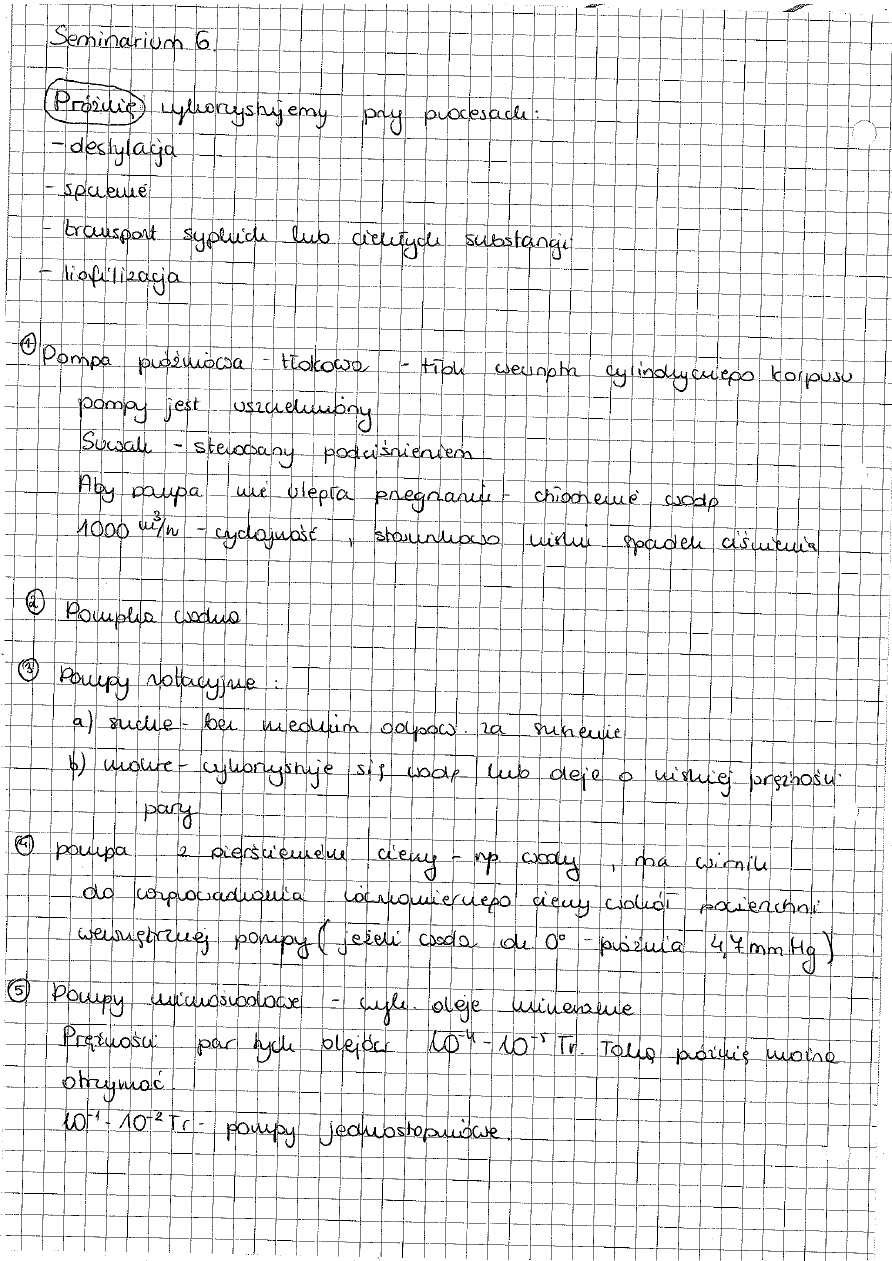 Seminarium 6.
Próżnię wykorzystujemy przy procesach:
- destylacja
- suszenie
- transport sypkich lub ciekłych substancji
- liofilizacja
① Pompa próżniowa - tłokowa - tłok wewnątrz cylindrycznego korpusu
pompy jest uszczelniony
Suwak - sterowany podciśnieniem
Aby pompa nie uległa przegrzaniu - chłodzenie wodą
1000 m³/h - wydajność, stosunkowo niski spadek ciśnienia
② Pompka wodna
③ Pompy rotacyjne:
a) suche - bez medium odpow. za smarowanie
b) mokre - wykorzystuje się wodę lub oleje o niskiej prężności
pary
④ pompa z pierścieniem cieczy - np wody, ma wirnik
do rozprowadzania równomiernego cieczy wokół powierzchni
wewnętrznej pompy (jeżeli woda ok 0° - próżnia 4,7 mm Hg)
⑤ Pompy mimośrodowe - wyk. oleje mineralne
Prężności par tych olejów 10⁻⁴ - 10⁻⁵ Tr. Taką próżnię można
otrzymać
10⁻¹ - 10⁻² Tr - pompy jednostopniowe.